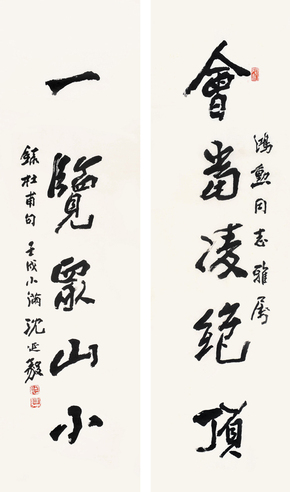 會當凌絕頂
鴻勳同志雅屬
一覽眾山小
錄杜甫句 壬戌小滿 沈延毅